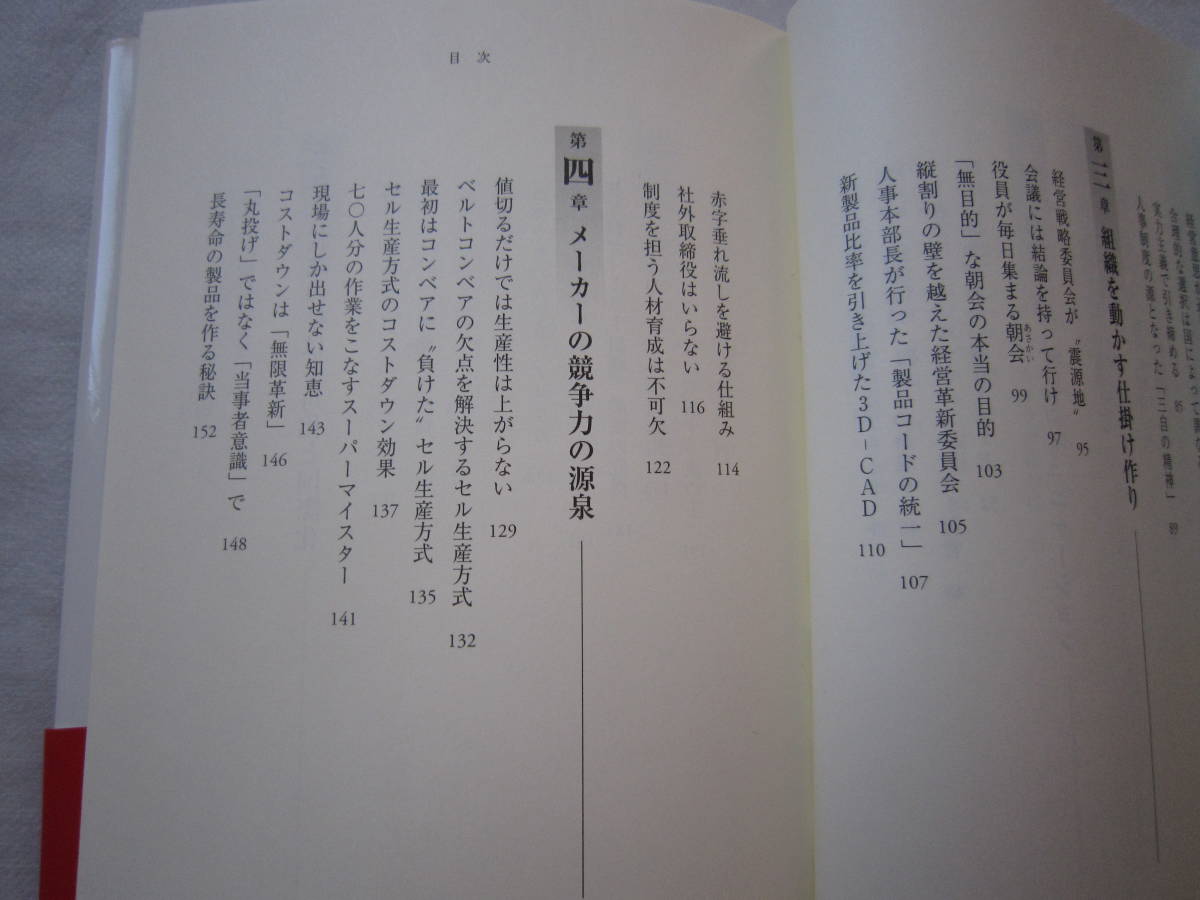 合理的な選択は国によって異
実力主義で引き締める 85
人事制度の源となった「三自の精神」 89
第三章 組織を動かす仕掛け作り
経営戦略委員会が〝震源地〟 95
会議には結論を持って行け 97
役員が毎日集まる朝会 99
あさかい
「無目的」な朝会の本当の目的 103
縦割りの壁を越えた経営革新委員会 105
人事本部長が行った「製品コードの統一」 107
新製品比率を引き上げた3D-CAD 110
目次
赤字垂れ流しを避ける仕組み 114
社外取締役はいらない 116
制度を担う人材育成は不可欠 122
第四章 メーカーの競争力の源泉
値切るだけでは生産性は上がらない 129
ベルトコンベアの欠点を解決するセル生産方式 132
最初はコンベアに〝負けた〟セル生産方式 135
セル生産方式のコストダウン効果 137
七〇人分の作業をこなすスーパーマイスター 141
現場にしか出せない知恵 143
コストダウンは「無限革新」 146
「丸投げ」ではなく「当事者意識」で 148
長寿命の製品を作る秘訣 152